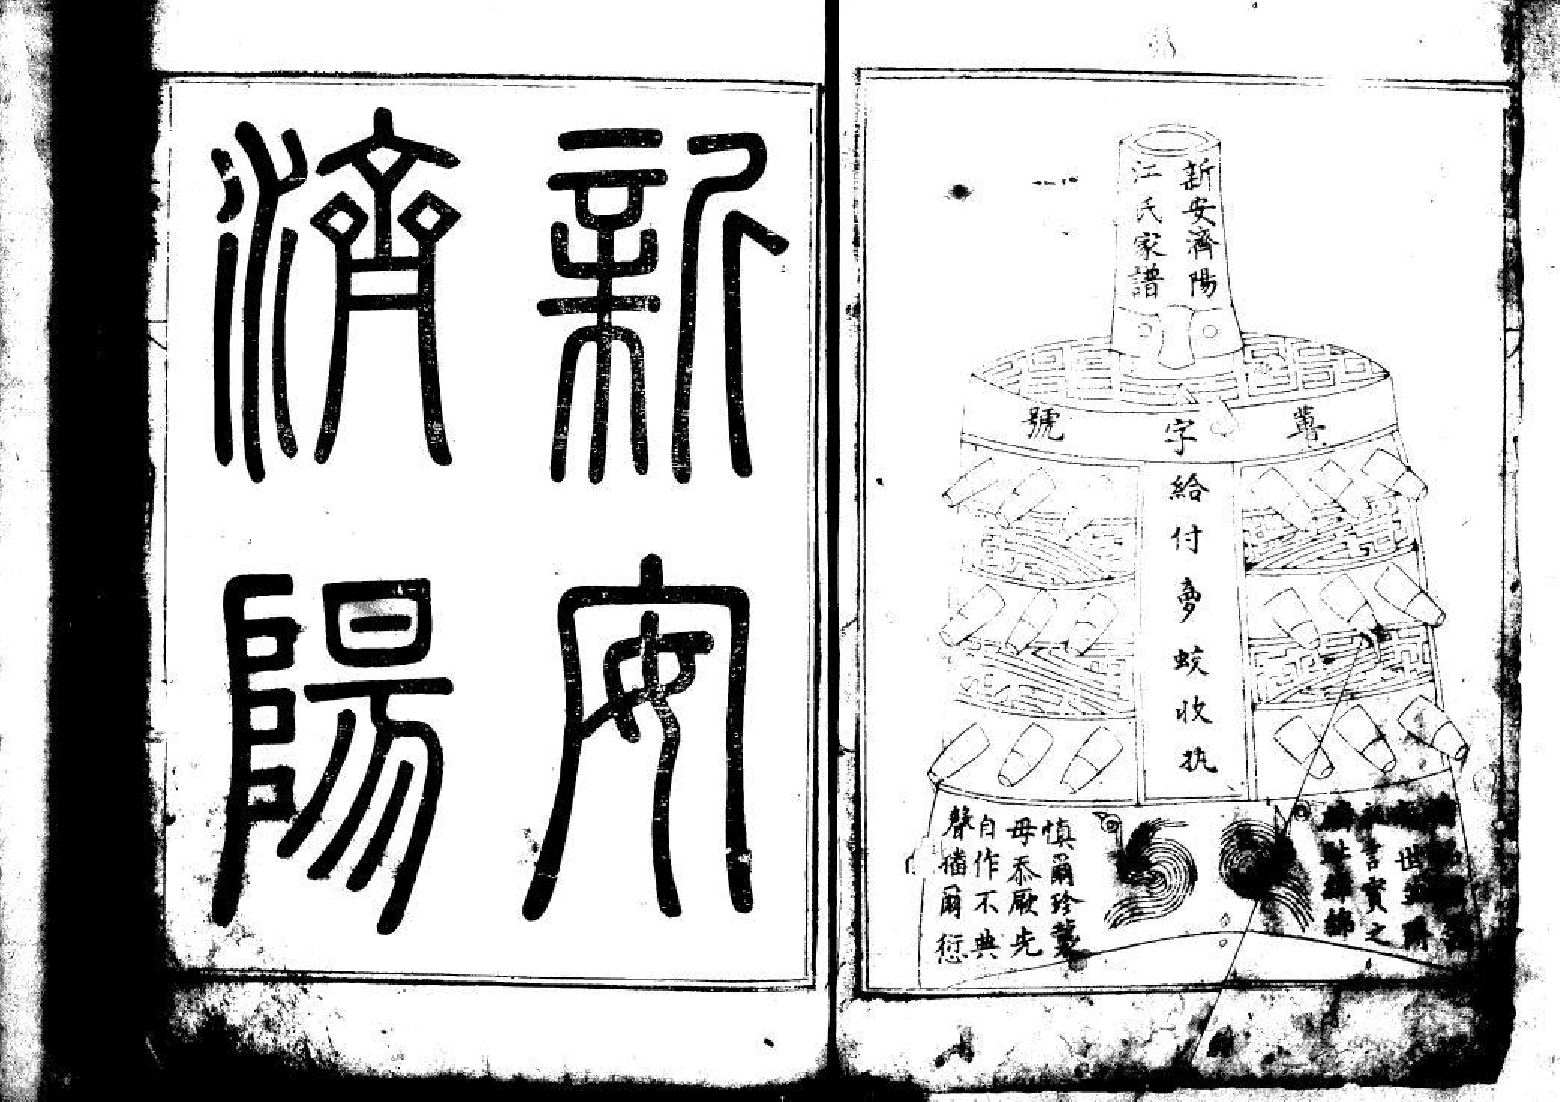 新安濟陽
江氏家譜
萬字號
給付夢蛟收执
世
言實之
慎爾珍藏
毋忝厥先
自作不典
聲播爾愆
新安
濟陽